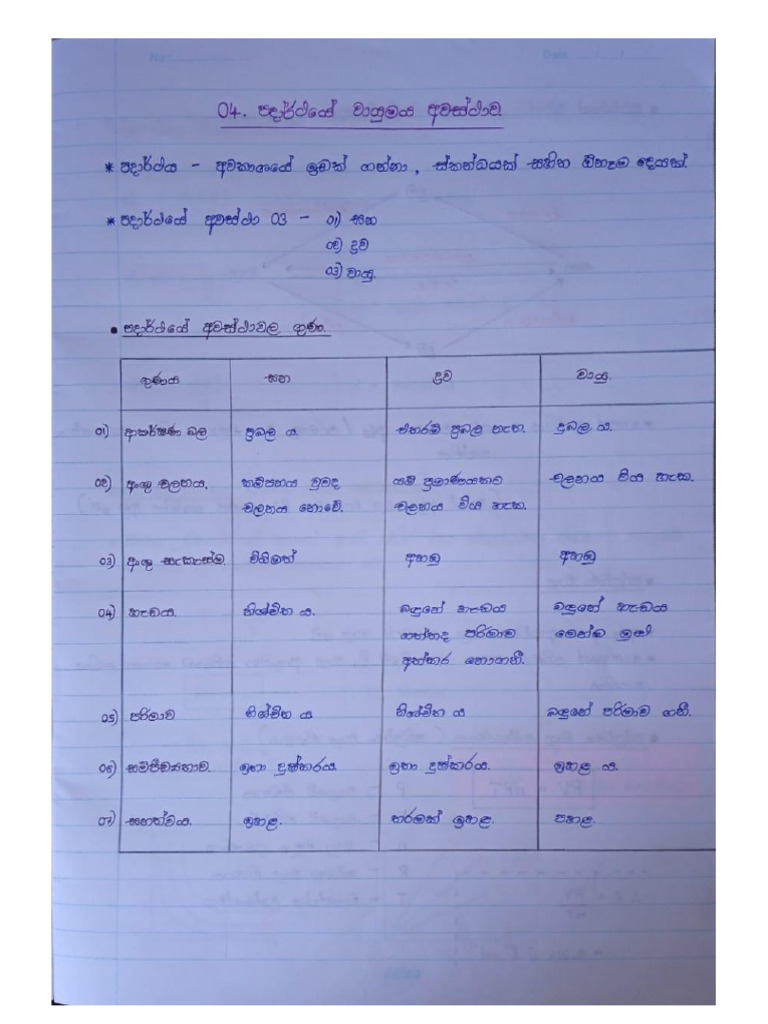 No:
Date
04. පදාර්ථයේ වායුමය අවස්ථාව
* පදාර්ථය - අවකාශයේ ඉඩක් ගන්නා, ස්කන්ධයක් සහිත ඕනෑම දෙයක්.
* පදාර්ථයේ අවස්ථා 03 - 01) ඝන
02) ද්‍රව
03) වායු.
• පදාර්ථයේ අවස්ථාවල ගුණ.
ගුණය ඝන ද්‍රව වායු.
01) ආකර්ෂණ බල ප්‍රබල ය. එතරම් ප්‍රබල නැත. දුබල ය.
02) අංශු චලනය. කම්පනය වුවද යම් ප්‍රමාණයකට චලනය විය හැක.
චලනය නොවේ. චලනය විය හැක.
03) අංශු සැකැස්ම. විධිමත් අහඹු අහඹු
04) හැඩය. නිශ්චිත ය. බඳුනේ හැඩය බඳුනේ හැඩය
ගත්තද පරිමාව මෙන්ම
අත්කර නොගනී.
05) පරිමාව නිශ්චිත ය නිශ්චිත ය බඳුනේ පරිමාව ගනී.
06) සම්පීඩ්‍යතාව. ඉතා දුෂ්කරය. ඉතා දුෂ්කරය. ඉහළ ය.
07) ඝනත්වය. ඉහළ. තරමක් ඉහළ. පහළ.